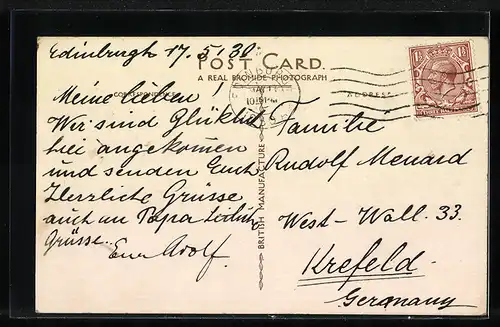 Edinburgh 17.5.30.
POST CARD.
A REAL BROMIDE PHOTOGRAPH
CORRESPONDENCE
ADDRESS
Meine Lieben!
Wir sind Glücklich
bei angekommen
und senden Euch
Herzliche Grüsse
auch an Papa
Grüsse.
Euer Adolf.
BRITISH MANUFACTURE
Familie
Rudolf Menard
West-Wall. 33.
Krefeld.
Germany